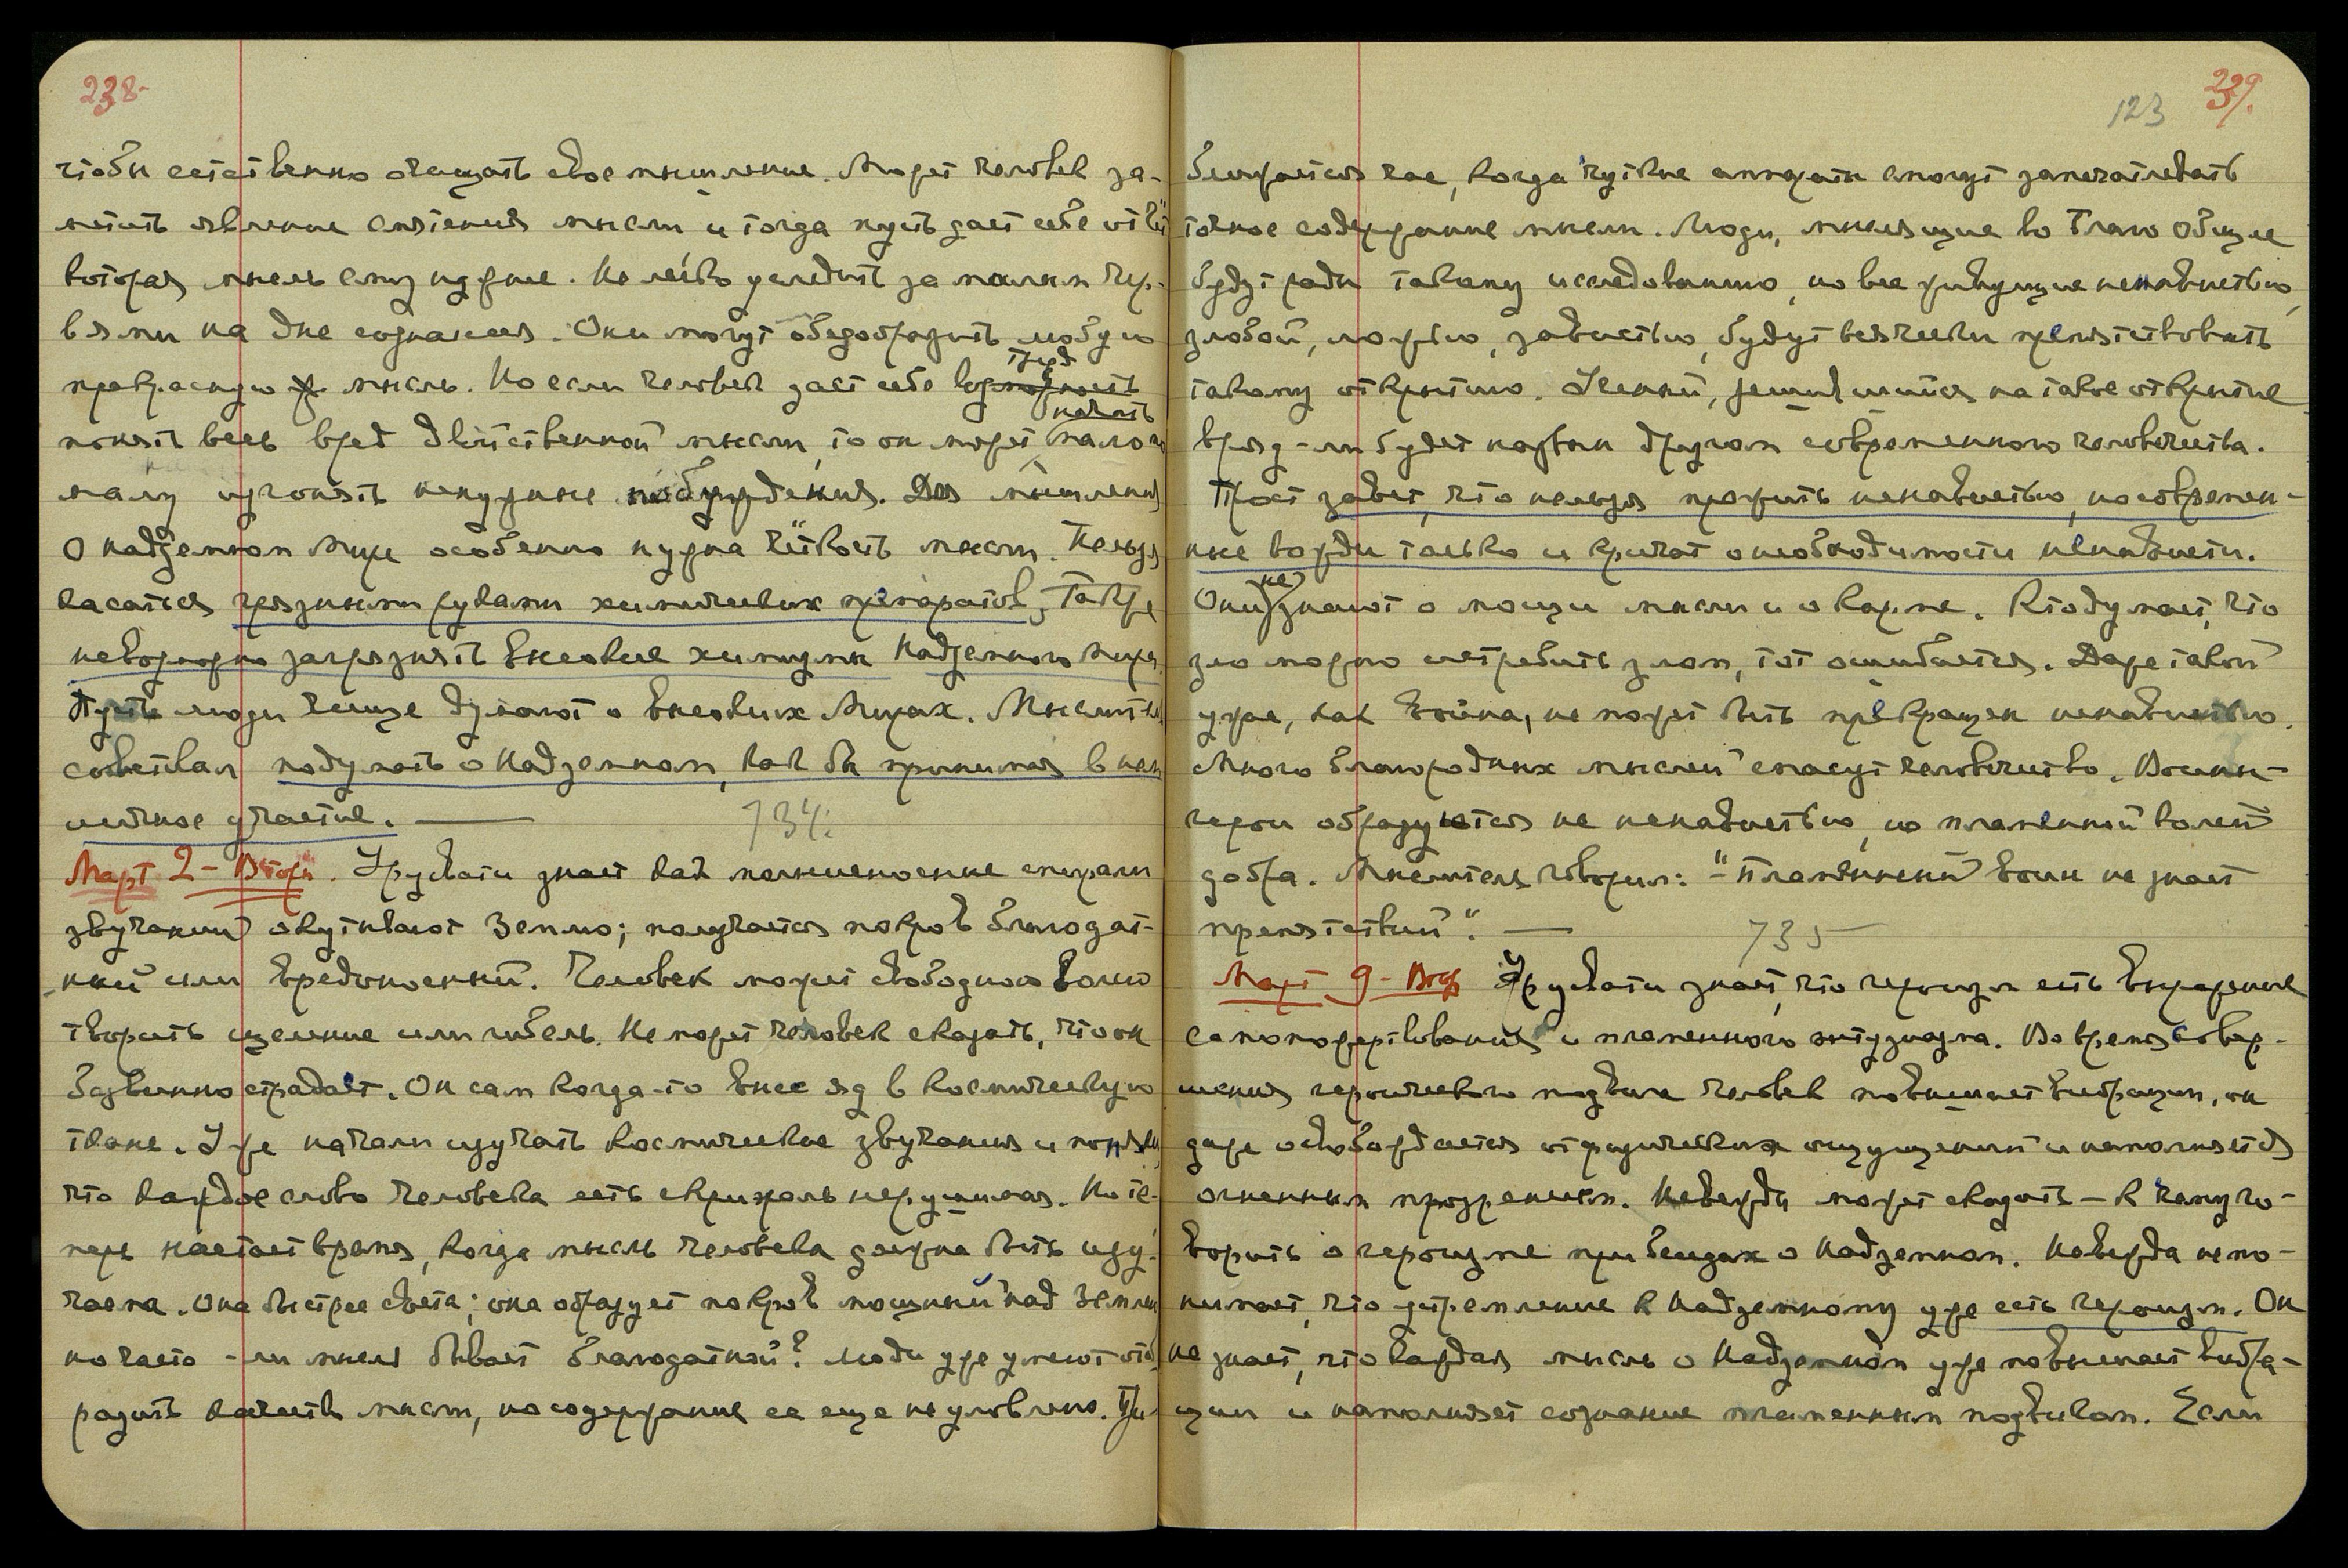 238.
чтобы естественно очищать свое мышление. Может человек за-
метить явление смятения мысли и тогда пусть дает себе отчёт
которая мысль ему нужнее. Не легко уследить за малыми чер-
вями на дне сознания. Они могут обезобразить любую
прекрасную мысль. Но если человек даст себе труд
понять весь вред двойственной мысли, то он может начать мало по
малу изгонять ненужные побуждения. Для мышления
о Надземном Мире особенно нужна чёткость мысли. Нельзя
касаться грязными руками химических препаратов, также
невозможно загрязнять высокие химизмы Надземного Мира.
Пусть люди чаще думают о высоких Мирах. Мыслитель
советовал подумать о Надземном, как бы принимая в нем
личное участие. —
734.
Март 2 - Втор. Урусвати знает как малишеносные спирали
звучаний окутывают Землю; получается покров благодат-
ный или вредоносный. Человек может свободною волею
творить целение или гибель. Не может человек сказать, что он
безвинно страдает. Он сам когда-то внес яд в космическую
ткань. Уже начали изучать космические звучания и поняли,
что каждое слово человека есть скрижаль нерушимая. Но те-
перь настает время, когда мысль человека должна быть изу-
чаема. Она быстрее света; она образует покров мощный над Землею
но часто-ли мысль бывает благодатной? Люди уже умеют отоб-
разить качеств мысли, но содержание ее еще не уловлено. При-
123 239.
ближается час, когда чуткие аппараты смогут запечатлевать
точное содержание мысли. Люди, мыслящие во Благо Общее
будут рады такому исследованию, но все живущие ненавистью,
злобой, ложью, завистью, будут всячески препятствовать
такому открытию. Ученый, решившийся на такое открытие
вряд-ли будет назван другом современного человечества.
Прост завет, что нельзя прожить ненавистью, но современ-
ные вожди только и кричат о необходимости ненависти.
Они не знают о мощи мысли и о карме. Кто думает, что
зло можно истребить злом, тот ошибается. Даже такой
ужас, как война, не может быть прекращен ненавистью.
Много благородных мыслей спасут человечество. Воины-
герои образуются не ненавистью, но пламенной волей
добра. Мыслитель говорил: "Пламенный воин не знает
препятствий". —
735
Март 9 - Втор Урусвати знает, что героизм есть выражение
самопожертвования и пламенного энтузиазма. Во время совер-
шения героического подвига человек повышает вибрации, он
даже освобождается от физических ощущений и наполняется
огненным прозрением. Невежды может сказать — к чему го-
ворить о героизме при беседах о Надземном. Невежда не по-
нимает, что устремление к Надземному уже есть героизм. Он
не знает, что каждая мысль о Надземном уже повышает вибра-
ции и наполняет сознание пламенным подвигом. Если